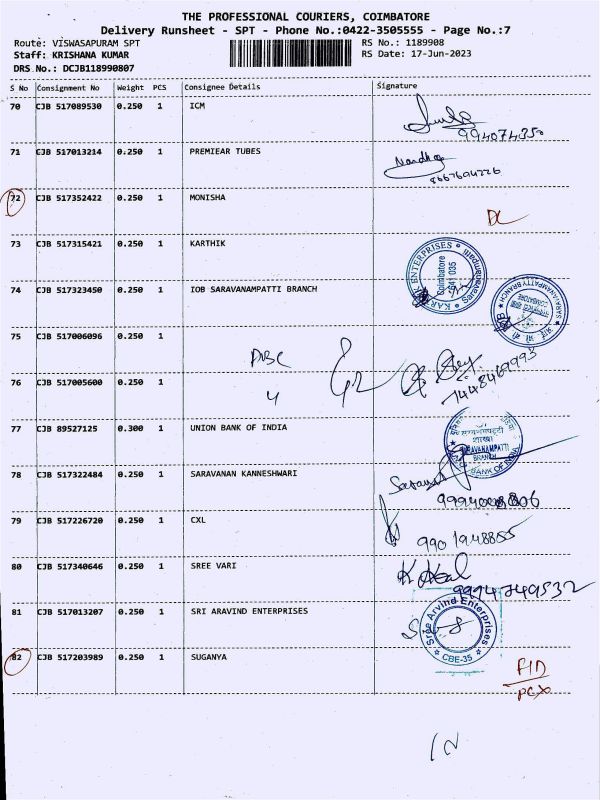 THE PROFESSIONAL COURIERS, COIMBATORE
Delivery Runsheet - SPT - Phone No.:0422-3505555 - Page No.:7
Route: VISWASAPURAM SPT RS No.: 1189908
Staff: KRISHANA KUMAR RS Date: 17-Jun-2023
DRS No.: DCJB118990807
S No Consignment No Weight PCS Consignee Details Signature
70 CJB 517089530 0.250 1 ICM
994074350
71 CJB 517013214 0.250 1 PREMIEAR TUBES
8667694226
72 CJB 517352422 0.250 1 MONISHA
DL
73 CJB 517315421 0.250 1 KARTHIK
ENTERPRISES
Coimbatore
641 035
Saravanampatti
74 CJB 517323450 0.250 1 IOB SARAVANAMPATTI BRANCH
SARAVANAMPATTI BRANCH
COIMBATORE
75 CJB 517006096 0.250 1
76 CJB 517005600 0.250 1
7448469993
77 CJB 89527125 0.300 1 UNION BANK OF INDIA
शाखा
SARAVANAMPATTI
BRANCH
BANK OF INDIA
78 CJB 517322484 0.250 1 SARAVANAN KANNESHWARI
79 CJB 517226720 0.250 1 CXL
9901948855
80 CJB 517340646 0.250 1 SREE VARI
9994749532
81 CJB 517013207 0.250 1 SRI ARAVIND ENTERPRISES
Sree Arvind Enterprises
CBE-35
82 CJB 517203989 0.250 1 SUGANYA